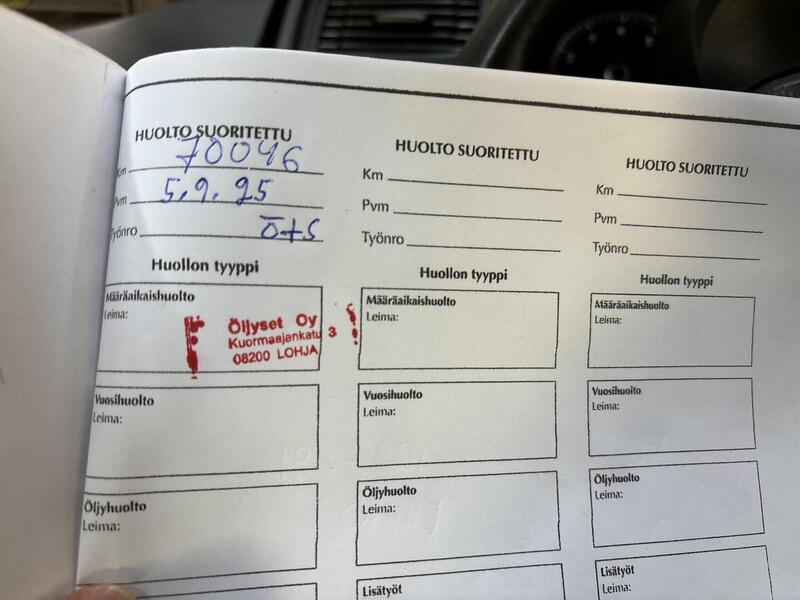 HUOLTO SUORITETTU
Km 70046
Pvm 5.9.25
Työnro Ö+S
Huollon tyyppi
Määräaikaishuolto
Leima:
Öljyset Oy
Kuormaajankatu 3
08200 LOHJA
Vuosihuolto
Leima:
Öljyhuolto
Leima:
HUOLTO SUORITETTU
Km
Pvm
Työnro
Huollon tyyppi
Määräaikaishuolto
Leima:
Vuosihuolto
Leima:
Öljyhuolto
Leima:
Lisätyöt
HUOLTO SUORITETTU
Km
Pvm
Työnro
Huollon tyyppi
Määräaikaishuolto
Leima:
Vuosihuolto
Leima:
Öljyhuolto
Leima:
Lisätyöt
Leima: